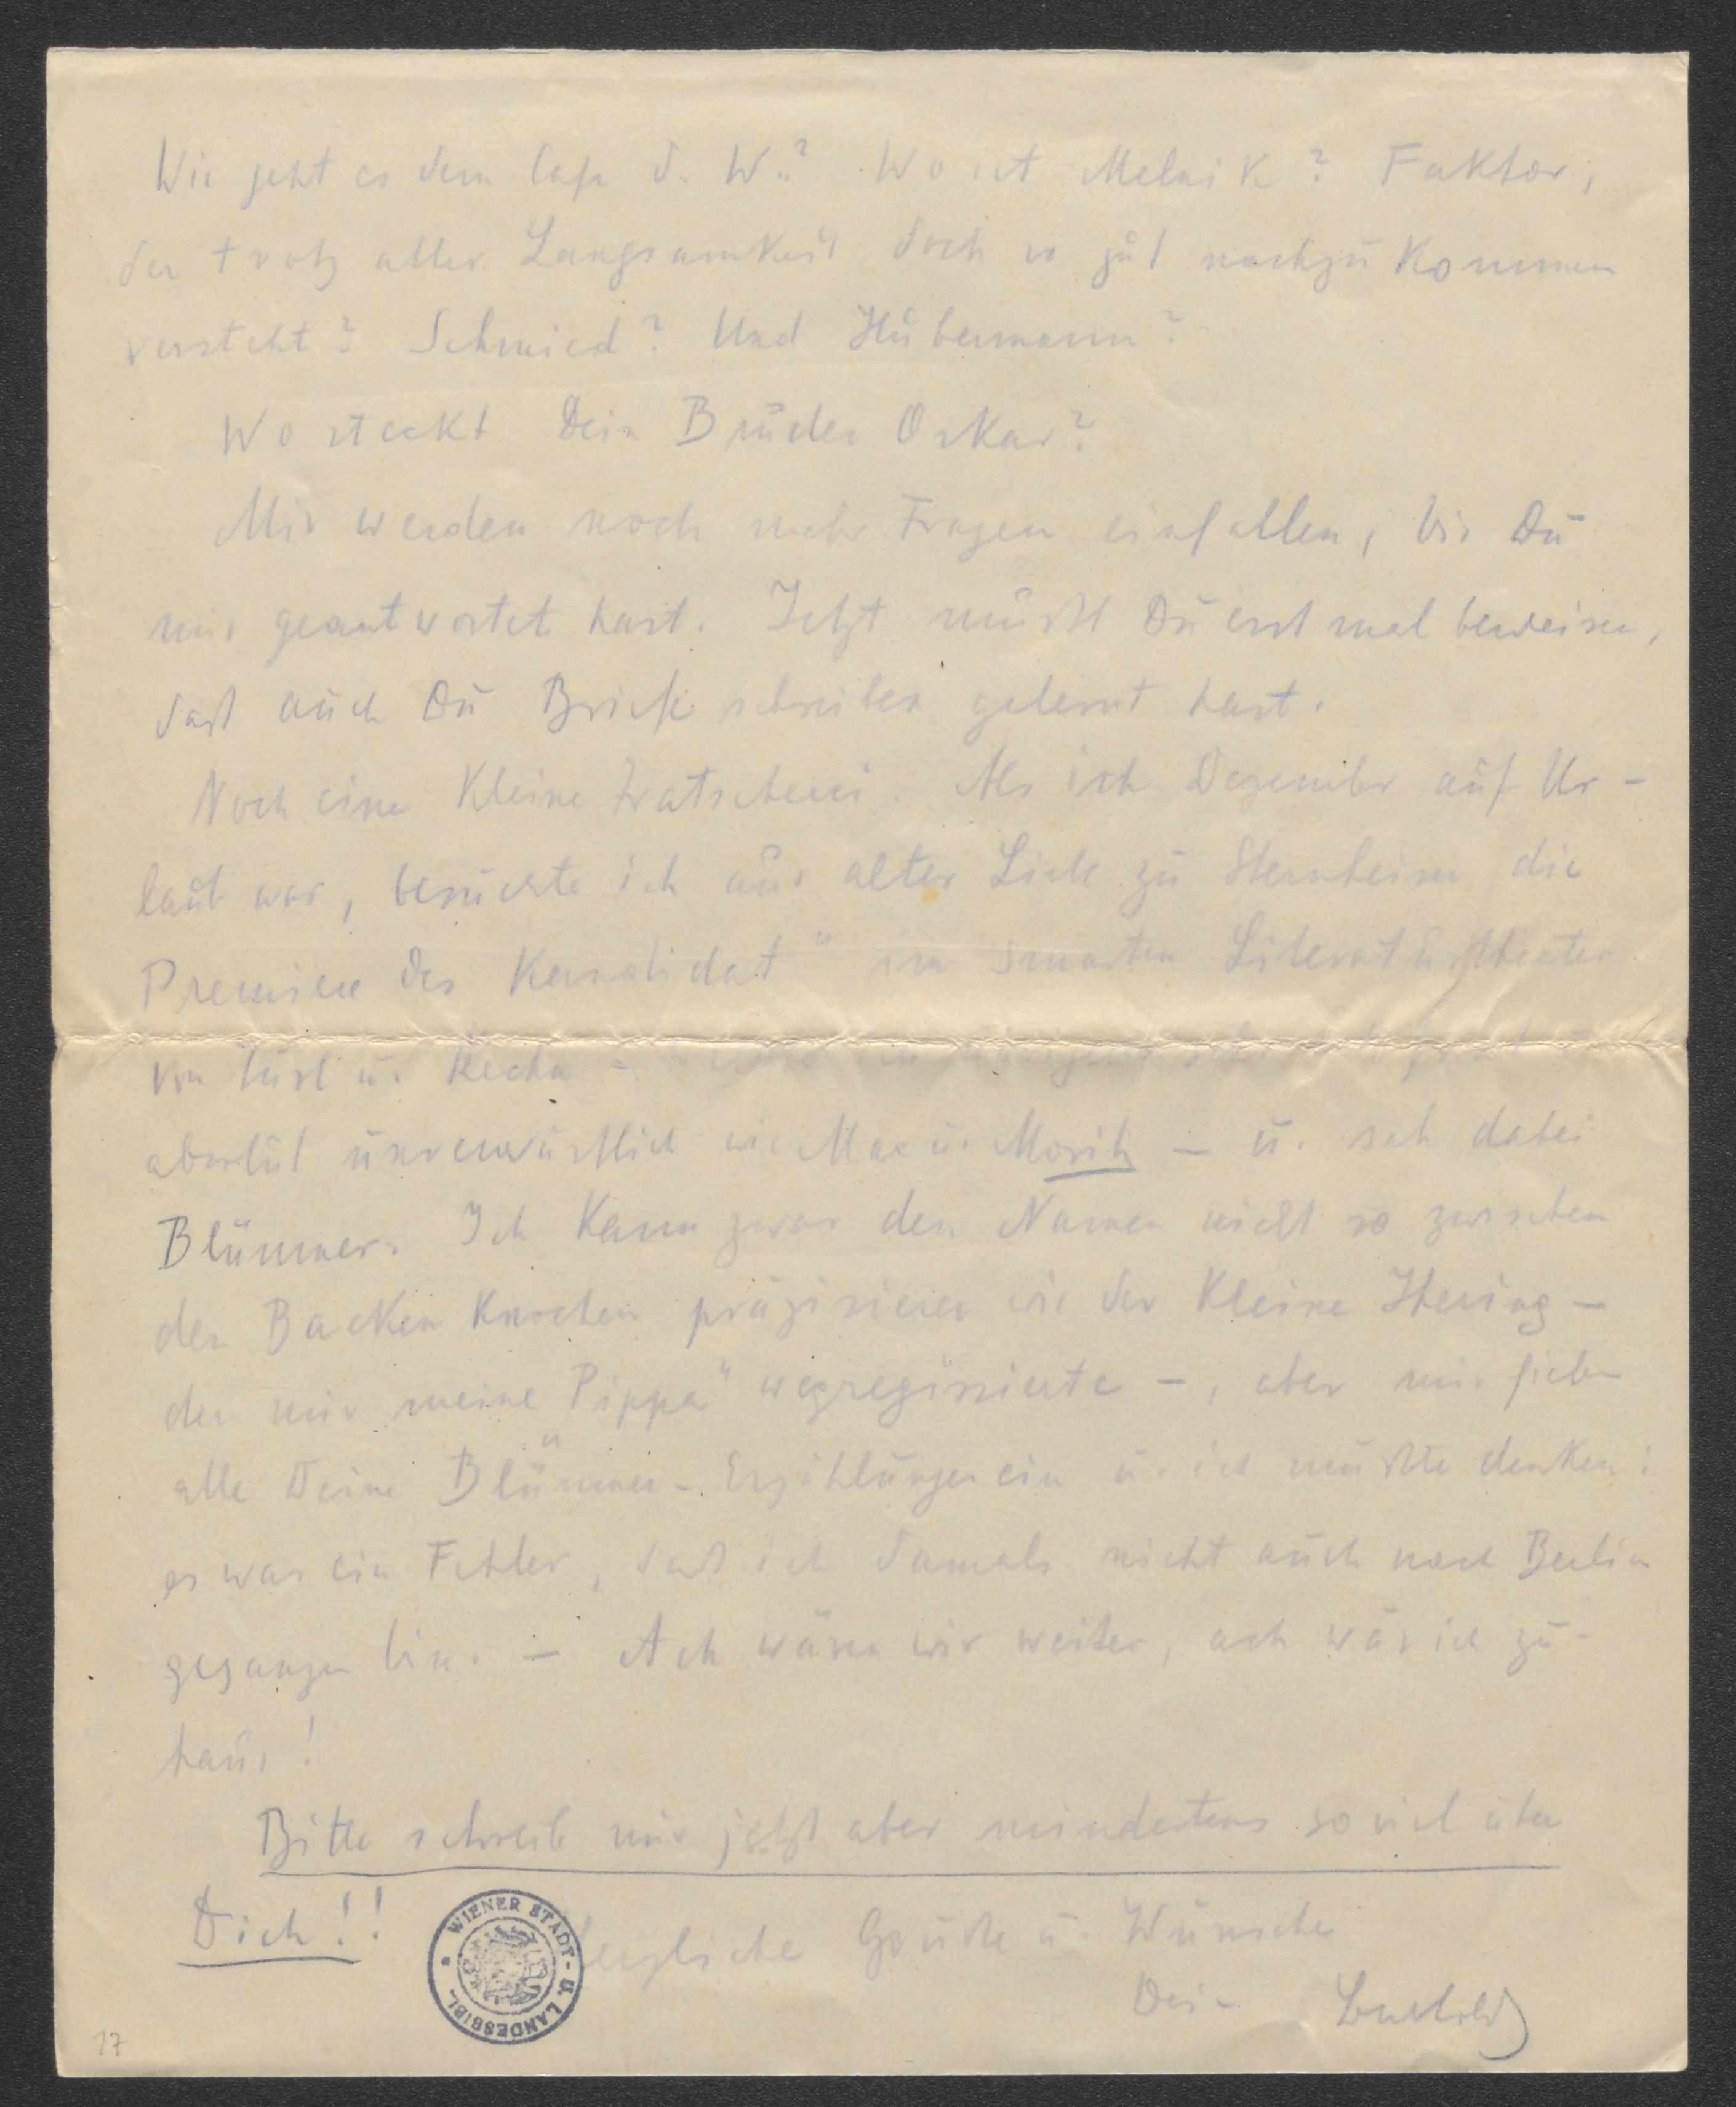 Wie geht es dem Café d. W.? Wo ist Melnik? Faktor,
der trotz aller Langsamkeit doch so gut nachzukommen
versteht? Schmied? Und Hubermann?
Wo steckt Dein Bruder Oskar?
Mir werden noch mehr Fragen einfallen, bis Du
mir geantwortet hast. Jetzt mußt Du erst mal beweisen,
daß auch Du Briefe schreiben gelernt hast.
Noch eine kleine Tratscherei. Als ich Dezember auf Ur-
laub war, besuchte ich aus alter Liebe zu Sternheim die
Premiere des Kandidat" im smarten Literaturtheater
von u. Kecha -
absolut unverwüstlich wie Max u. Moritz - u. sah dabei
Blümner. Ich kann zwar den Namen nicht so zwischen
den Backenknochen präzisieren wie der kleine Ihering -
der mir meine Pippa" wegregissierte -, aber mir fielen
alle Deine Blümner-Erzählungen ein u. ich mußte denken:
es war ein Fehler, daß ich damals nicht auch nach Berlin
gegangen bin. - Ach wären wir weiter, ach wär ich zu-
haus!
Bitte schreib mir jetzt aber mindestens soviel über
Dich!! Herzliche Grüße u. Wünsche
Dein Berthold
WIENER STADT- U. LANDESBIBL.
17